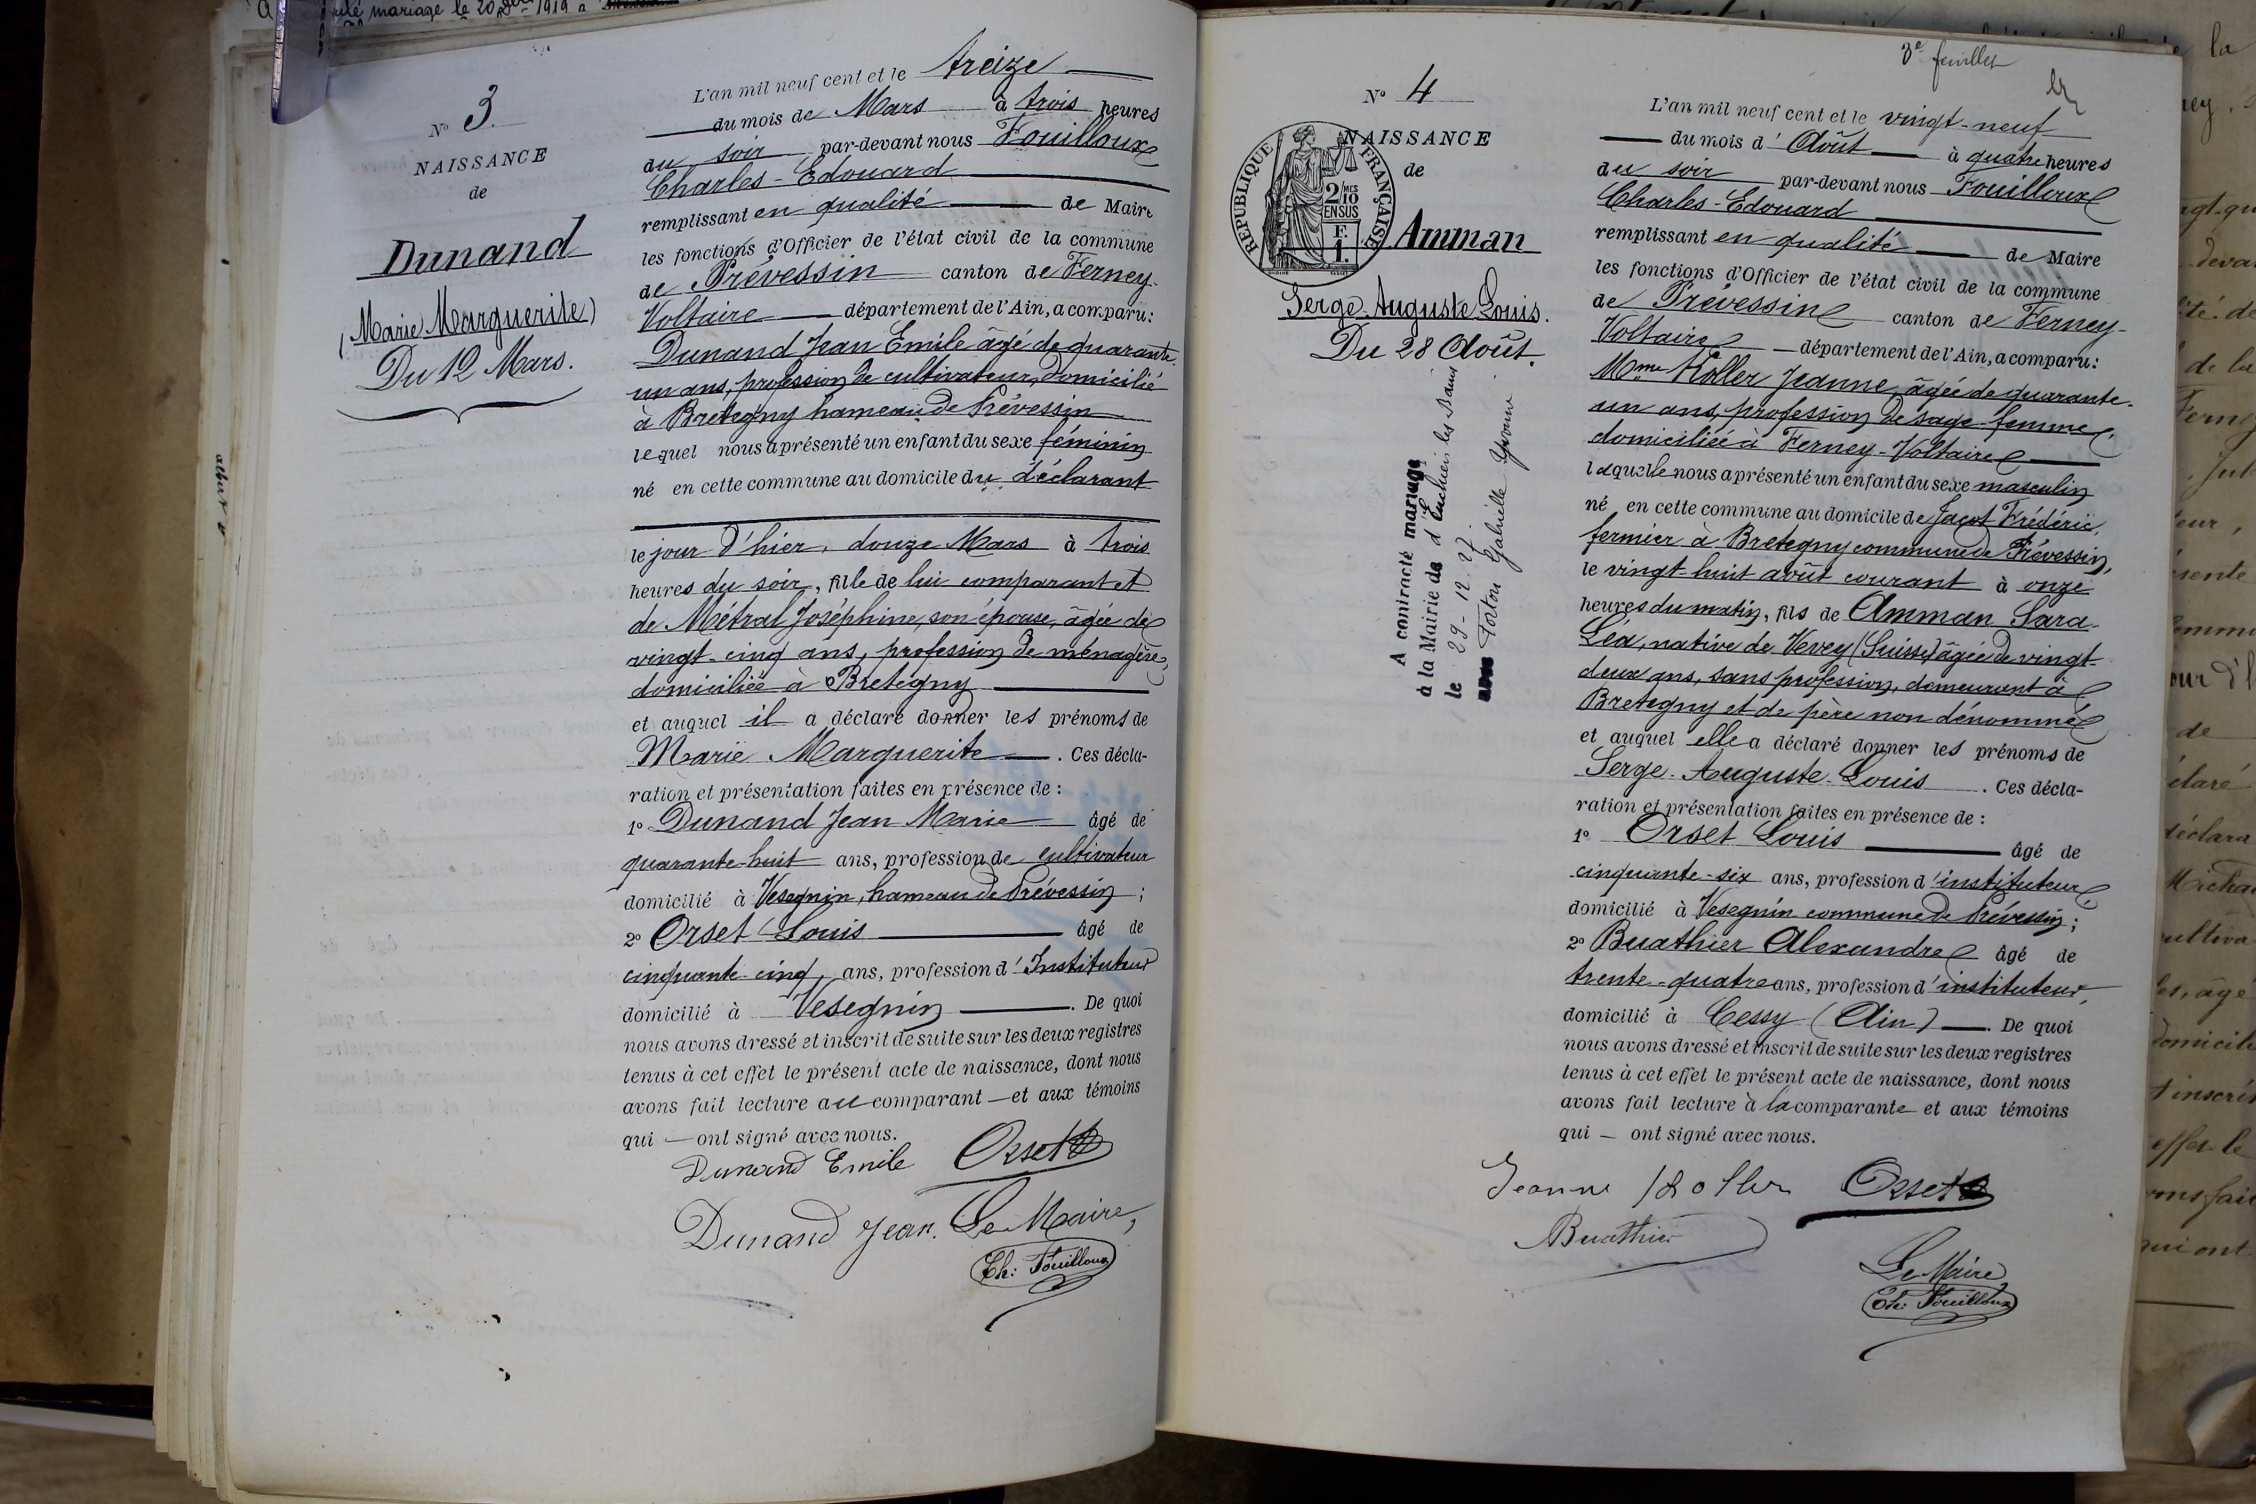 mariage le 20
1919 à
N° 3.
NAISSANCE
de
Dunand
(Marie Marguerite)
Du 12 Mars.
L'an mil neuf cent et le treize
du mois de Mars à trois heures
du soir par-devant nous Fouilloux
Charles-Edouard
remplissant en qualité de Maire
les fonctions d'Officier de l'état civil de la commune
de Prévessin canton de Ferney-
Voltaire département de l'Ain, a comparu:
Dunand Jean Emile âgé de quarante
un ans, profession de cultivateur, domicilié
à Bretegny hameau de Prévessin
lequel nous a présenté un enfant du sexe féminin
né en cette commune au domicile du déclarant
le jour d'hier, douze Mars à trois
heures du soir, fille de lui comparant et
de Métral Joséphine, son épouse, âgée de
vingt-cinq ans, profession de ménagère,
domiciliée à Bretegny
et auquel il a déclaré donner les prénoms de
Marie Marguerite. Ces décla-
ration et présentation faites en présence de :
1° Dunand Jean Marie âgé de
quarante-huit ans, profession de cultivateur
domicilié à Vesegnin, hameau de Prévessin ;
2° Orset Louis âgé de
cinquante-cinq, ans, profession d'Instituteur
domicilié à Vesegnin. De quoi
nous avons dressé et inscrit de suite sur les deux registres
tenus à cet effet le présent acte de naissance, dont nous
avons fait lecture au comparant et aux témoins
qui ont signé avec nous.
Dunand Emile Orset
Dunand Jean. Le Maire,
Ch: Fouilloux
3e feuillet
N° 4
NAISSANCE
de
RÉPUBLIQUE FRANÇAISE
2 MES
10
EN SUS
F.
1.
Amman
Serge-Auguste-Louis.
Du 28 Août.
A contracté mariage
à la Mairie de les Bains
le 29-12-27
Gabrielle Yvonne
L'an mil neuf cent et le vingt-neuf
du mois d'Août à quatre heures
du soir par-devant nous Fouilloux
Charles-Edouard
remplissant en qualité de Maire
les fonctions d'Officier de l'état civil de la commune
de Prévessin canton de Ferney-
Voltaire département de l'Ain, a comparu:
Mme Koller Jeanne, âgée de quarante-
un ans, profession de sage-femme,
domiciliée à Ferney-Voltaire
laquelle nous a présenté un enfant du sexe masculin
né en cette commune au domicile de Jacot Frédéric,
fermier à Bretegny commune de Prévessin,
le vingt-huit août courant à onze
heures du matin, fils de Amman Sara-
Léa, native de Vevey (Suisse) âgée de vingt-
deux ans, sans profession, demeurant à
Bretegny et de père non dénommé
et auquel elle a déclaré donner les prénoms de
Serge-Auguste-Louis. Ces décla-
ration et présentation faites en présence de :
1° Orset Louis âgé de
cinquante-six ans, profession d'instituteur
domicilié à Vesegnin commune de Prévessin ;
2° Buathier Alexandre âgé de
trente-quatre ans, profession d'instituteur,
domicilié à Cessy (Ain). De quoi
nous avons dressé et inscrit de suite sur les deux registres
tenus à cet effet le présent acte de naissance, dont nous
avons fait lecture à la comparante et aux témoins
qui ont signé avec nous.
Jeanne Koller Orset
Buathier
Le Maire
Ch: Fouilloux